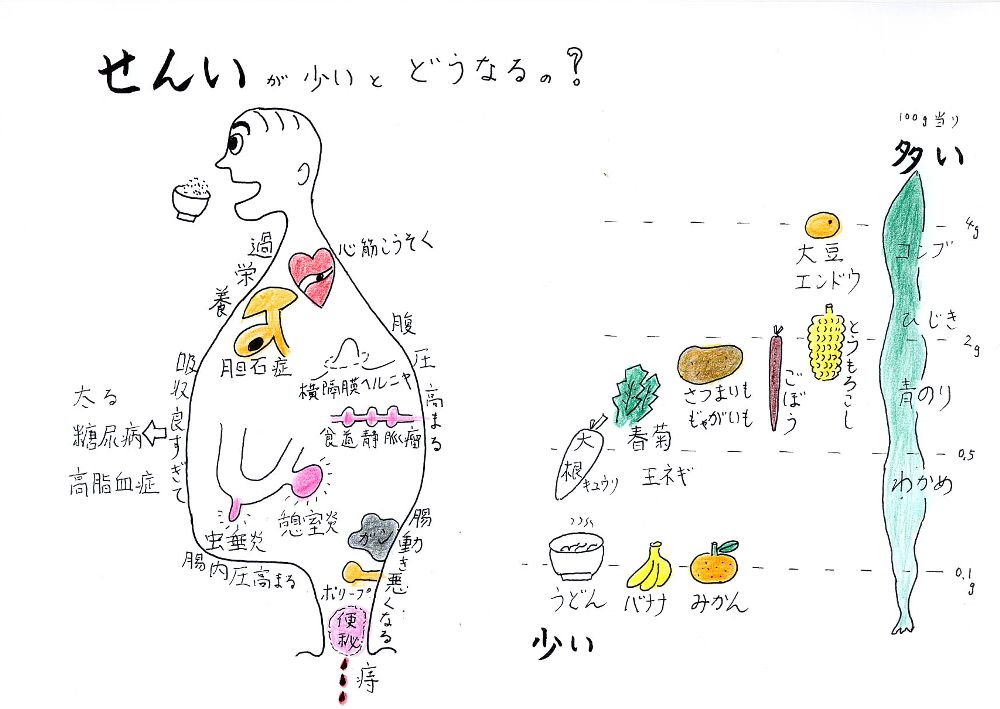 せんいが少いとどうなるの?
過栄養
心筋こうそく
胆石症
腹圧高まる
横隔膜ヘルニヤ
食道静脈瘤
吸収良すぎて
太る
糖尿病
高脂血症
虫垂炎
憩室炎
腸内圧高まる
ガン
腸動き悪くなる
ポリープ
便秘
痔
100g当り
多い
4g
大豆
エンドウ
コンブ
ひじき
2g
とうもろこし
ごぼう
さつまいも
じゃがいも
青のり
春菊
玉ネギ
大根
キュウリ
0.5
わかめ
うどん
バナナ
みかん
0.1g
少い